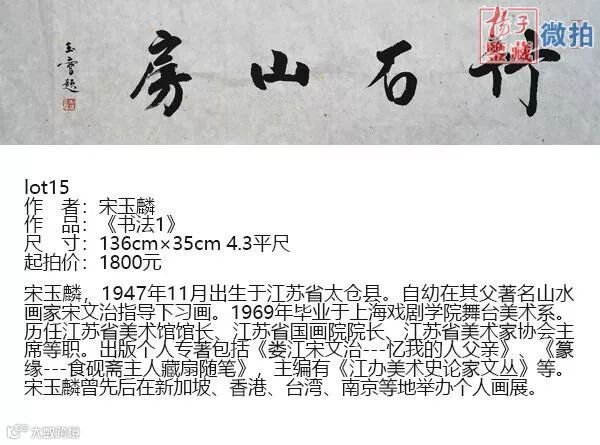 竹石山房
玉麐题
扬子
鉴藏
微拍
lot15
作　者：宋玉麟
作　品：《书法1》
尺　寸：136cm×35cm 4.3平尺
起拍价：1800元
宋玉麟，1947年11月出生于江苏省太仓县。自幼在其父著名山水
画家宋文治指导下习画。1969年毕业于上海戏剧学院舞台美术系。
历任江苏省美术馆馆长、江苏省国画院院长、江苏省美术家协会主
席等职。出版个人专著包括《娄江宋文治---忆我的人父亲》、《篆
缘---食砚斋主人藏扇随笔》，主编有《江办美术史论家文丛》等。
宋玉麟曾先后在新加坡、香港、台湾、南京等地举办个人画展。
大数跨境